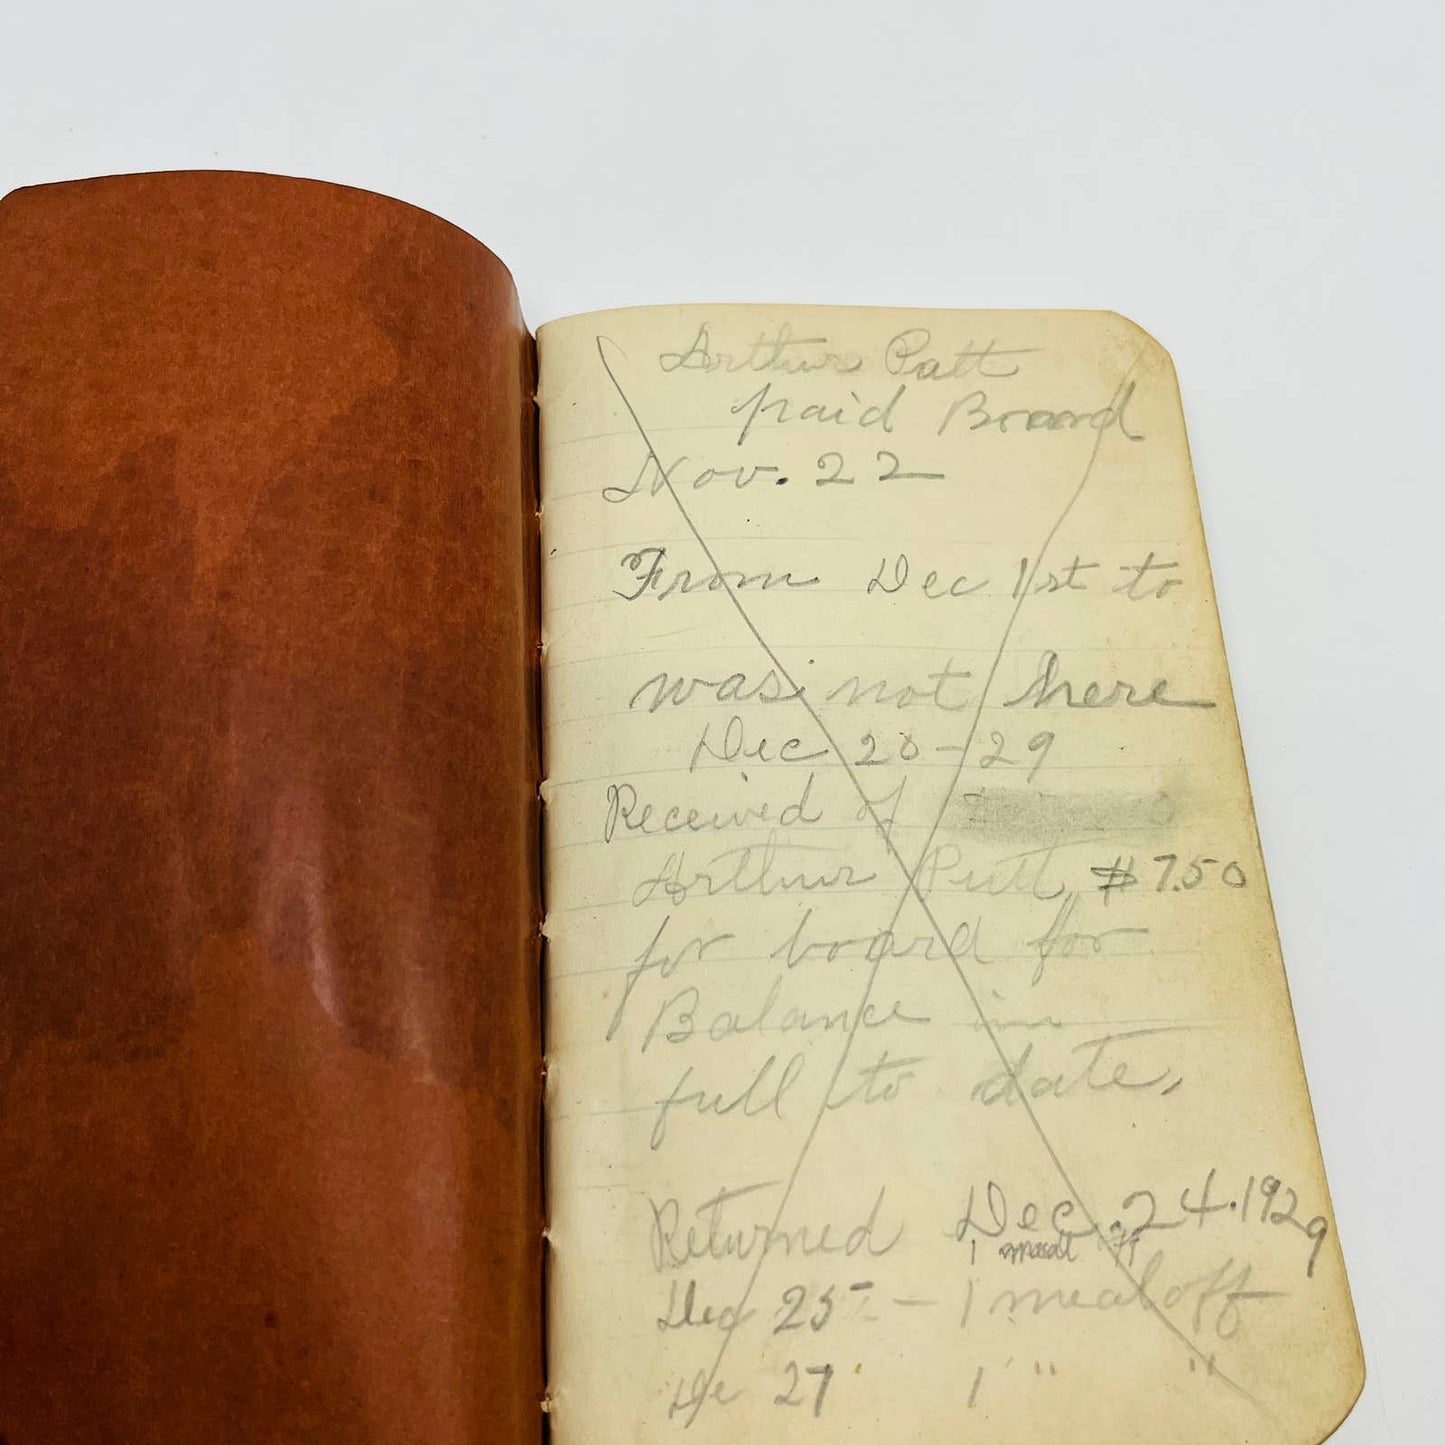 Arthur Patt
paid Board
Nov. 22
From Dec 1st to
was not here
Dec 20-29
Received of
Arthur Putt $7.50
for board for
Balance in
full to date,
Returned Dec. 24. 1929
1 meal
Dec 25 - 1 meal off
De 27 1 " "